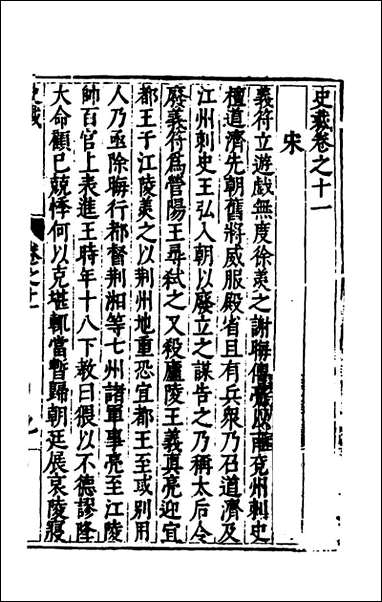 史裁卷之十一
宋
義符立遊戲無度徐羨之謝晦傅亮以南兗州刺史
檀道濟先朝舊將威服殿省且有兵衆乃召道濟及
江州刺史王弘入朝以廢立之謀告之乃稱太后令
廢義符爲營陽王尋弒之又殺廬陵王義真亮迎宜
都王于江陵羨之以荊州地重恐宜都王至或別用
人乃亟除晦行都督荊湘等七州諸軍事亮至江陵
帥百官上表進王時年十八下教曰猥以不德謬降
大命顧已兢悸何以克堪輒當暫歸朝廷展哀陵寢
史裁
卷之十一